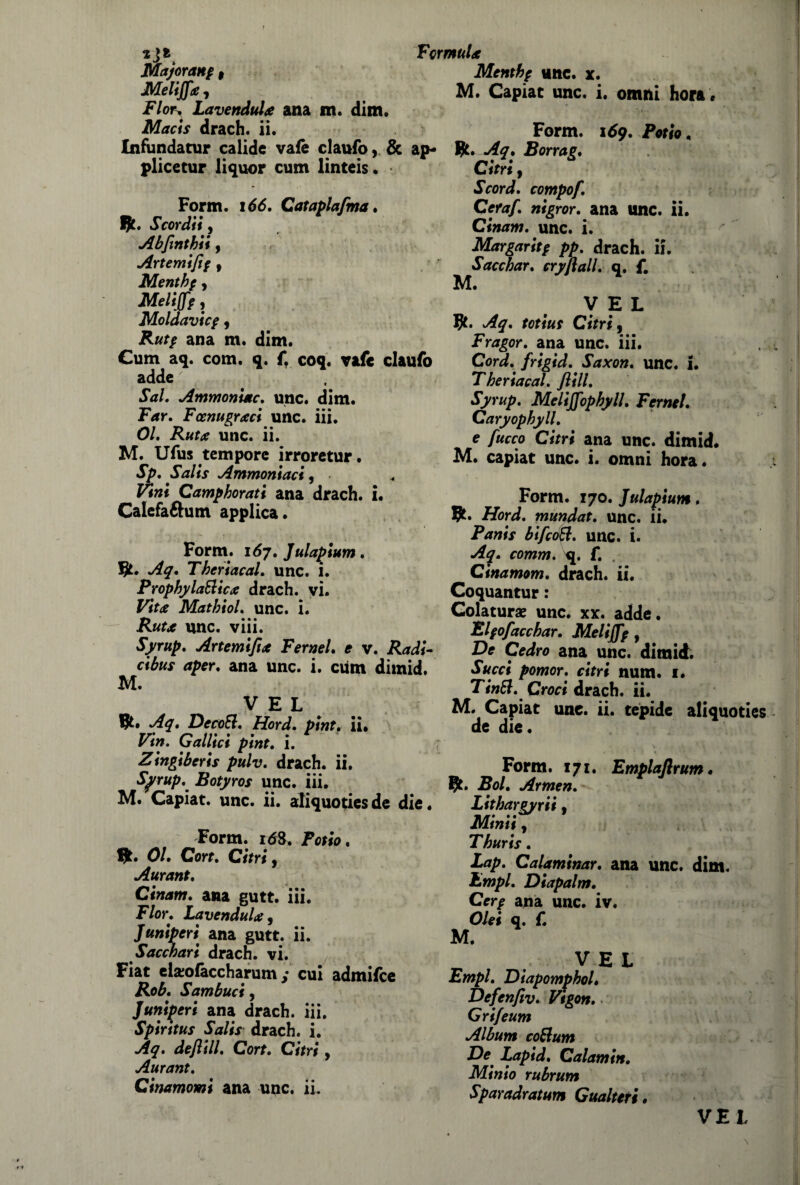 232 Formulæ
Majoranę,
Melissæ,
Flor. Lavendulæ ana m. dim.
Macis drach. ii.
Infundatur calide vaſe clauſo, & ap-
plicetur liquor cum linteis.
Form. 166. Cataplaſma.
℞. Scordii,
Abſinthii,
Artemiſię,
Menthę,
Meliſſę,
Moldavicę,
Rutę ana m. dim.
Cum aq. com. q. ſ. coq. vaſe clauſo
adde
Sal. Ammoniac. unc. dim.
Far. Fœnugræci unc. iii.
Ol. Rutæ unc. ii.
M. Uſus tempore irroretur.
Sp. Salis Ammoniaci,
Vini Camphorati ana drach. i.
Calefactum applica.
Form. 167. Julapium.
℞. Aq. Theriacal. unc. i.
Prophylacticæ drach. vi.
Vitæ Mathiol. unc. i.
Rutæ unc. viii.
Syrup. Artemiſiæ Fernel. e v. Radi-
cibus aper. ana unc. i. cum dimid.
M.
VEL
℞. Aq. Decoct. Hord. pint. ii.
Vin. Gallici pint. i.
Zingiberis pulv. drach. ii.
Syrup. Botyros unc. iii.
M. Capiat. unc. ii. aliquoties de die.
Form. 168. Potio.
℞. Ol. Cort. Citri,
Aurant.
Cinam. ana gutt. iii.
Flor. Lavendulæ,
Juniperi ana gutt. ii.
Sacchari drach. vi.
Fiat elæoſaccharum; cui admiſce
Rob. Sambuci,
Juniperi ana drach. iii.
Spiritus Salis drach. i.
Aq. deſtill. Cort. Citri,
Aurant.
Cinamomi ana unc. ii.
Menthę unc. x.
M. Capiat unc. i. omni hora.
Form. 169. Potio.
℞. Aq. Borrag.
Citri,
Scord. compoſ.
Ceraſ. nigror. ana unc. ii.
Cinam. unc. i.
Margaritę pp. drach. ii.
Sacchar. cryſtall. q. ſ.
M.
VEL
℞. Aq. totius Citri,
Fragor. ana unc. iii.
Cord. frigid. Saxon. unc. i.
Theriacal. ſtill.
Syrup. Meliſſophyll. Fernel.
Caryophyll.
e ſucco Citri ana unc. dimid.
M. capiat unc. i. omni hora.
Form. 170. Julapium.
℞. Hord. mundat. unc. ii.
Panis biſcoct. unc. i.
Aq. comm. q. ſ.
Cinamom. drach. ii.
Coquantur:
Colaturæ unc. xx. adde.
Elęoſacchar. Meliſſę,
De Cedro ana unc. dimid.
Succi pomor. citri num. 1.
Tinct. Croci drach. ii.
M. Capiat unc. ii. tepide aliquoties
de die.
Form. 171. Emplaſtrum.
℞. Bol. Armen.
Lithargyrii,
Minii,
Thuris.
Lap. Calaminar. ana unc. dim.
Empl. Diapalm.
Cerę ana unc. iv.
Olei q. ſ.
M.
VEL
Empl. Diapomphol.
Defenſiv. Vigon.
Griſeum
Album coctum
De Lapid. Calamin.
Minio rubrum
Sparadratum Gualteri.
VEL